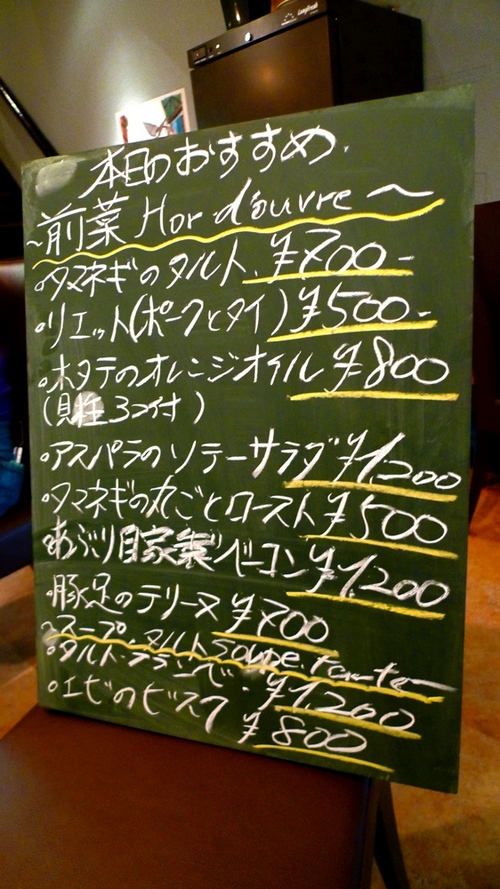 本日のおすすめ.
~前菜 Hor d'ouvre~
・タマネギのタルト. ¥700-
・リエット(ポークとタイ) ¥500-
・ホタテのオレンジオイル ¥800
(貝柱3コ付)
・アスパラのソテーサラダ ¥1.200
・タマネギの丸ごとロースト ¥500
・あぶり自家製ベーコン ¥1.200
・豚足のテリーヌ ¥700
~スープ.タルト Soupe.tarte~
・タルト・フランベ・ ¥1.200
・エビのビスク ¥800